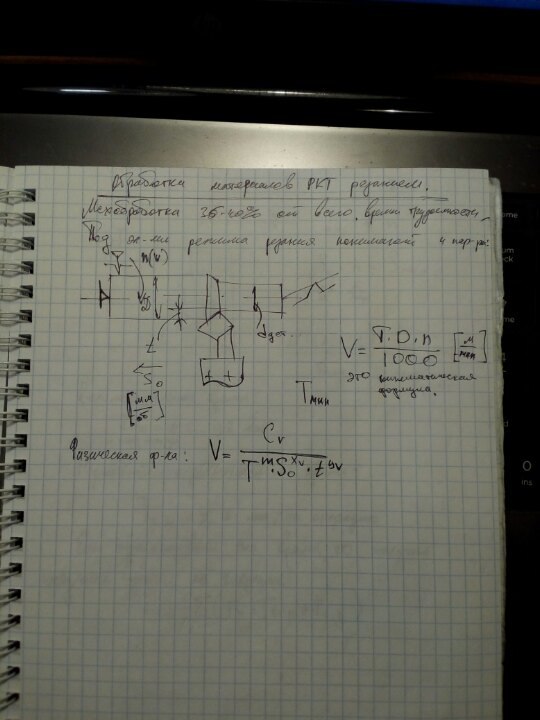 Обработка материалов РКТ резанием.
Мехобработка 35-40% от всего времени трудоемкости,
Под эл-ми режима резания понимают 4 пар-ра:
n(v)
D
t
dдет.
S₀
[мм/об]
Tмин
V = π.D.n / 1000 [м/мин]
это кинематическая
формула.
Физическая ф-ла: V = Cv / T^m·S₀^xv·t^yv